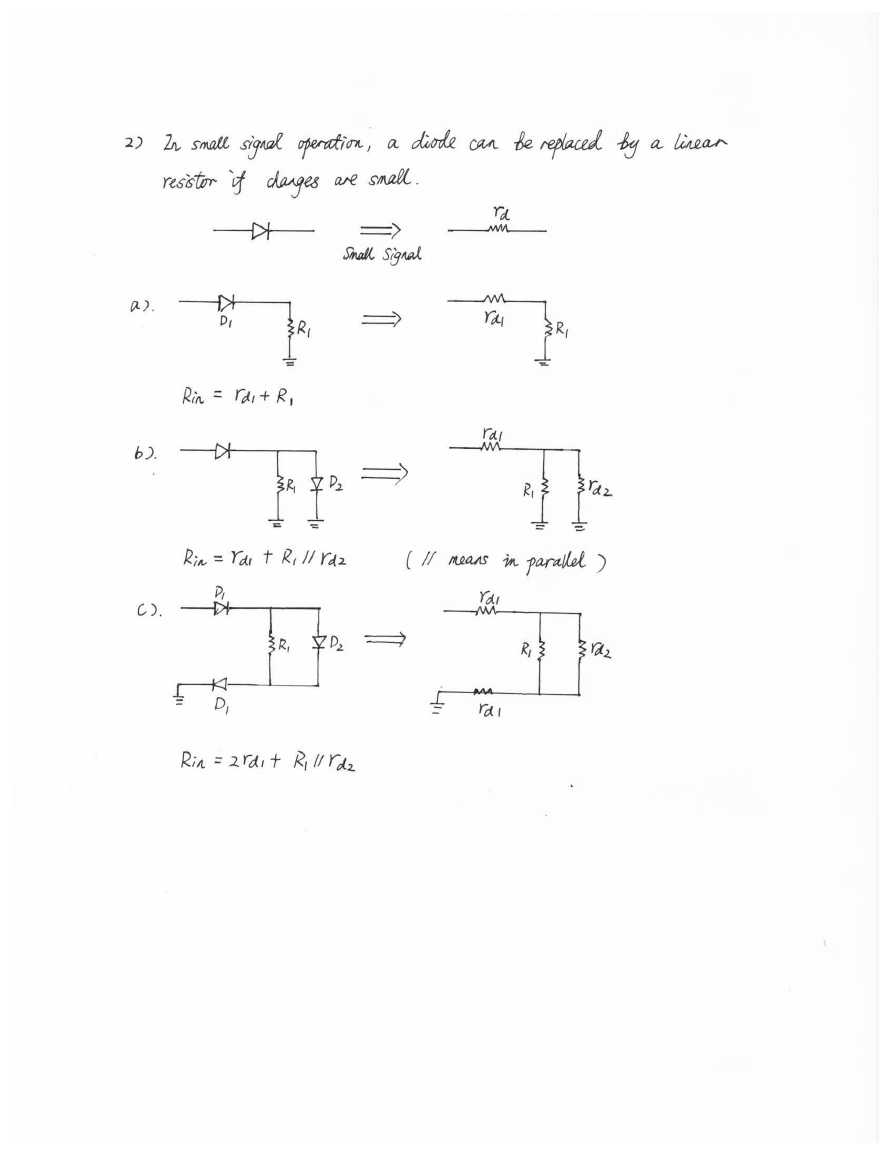 2) In small signal operation, a diode can be replaced by a linear
resistor if changes are small.
rd
Small Signal
a).
D1
R1
rd1
R1
Rin = rd1 + R1
b).
R1
D2
rd1
R1
rd2
Rin = rd1 + R1 // rd2 ( // means in parallel )
c).
D1
R1
D2
D1
rd1
R1
rd2
rd1
Rin = 2rd1 + R1 // rd2